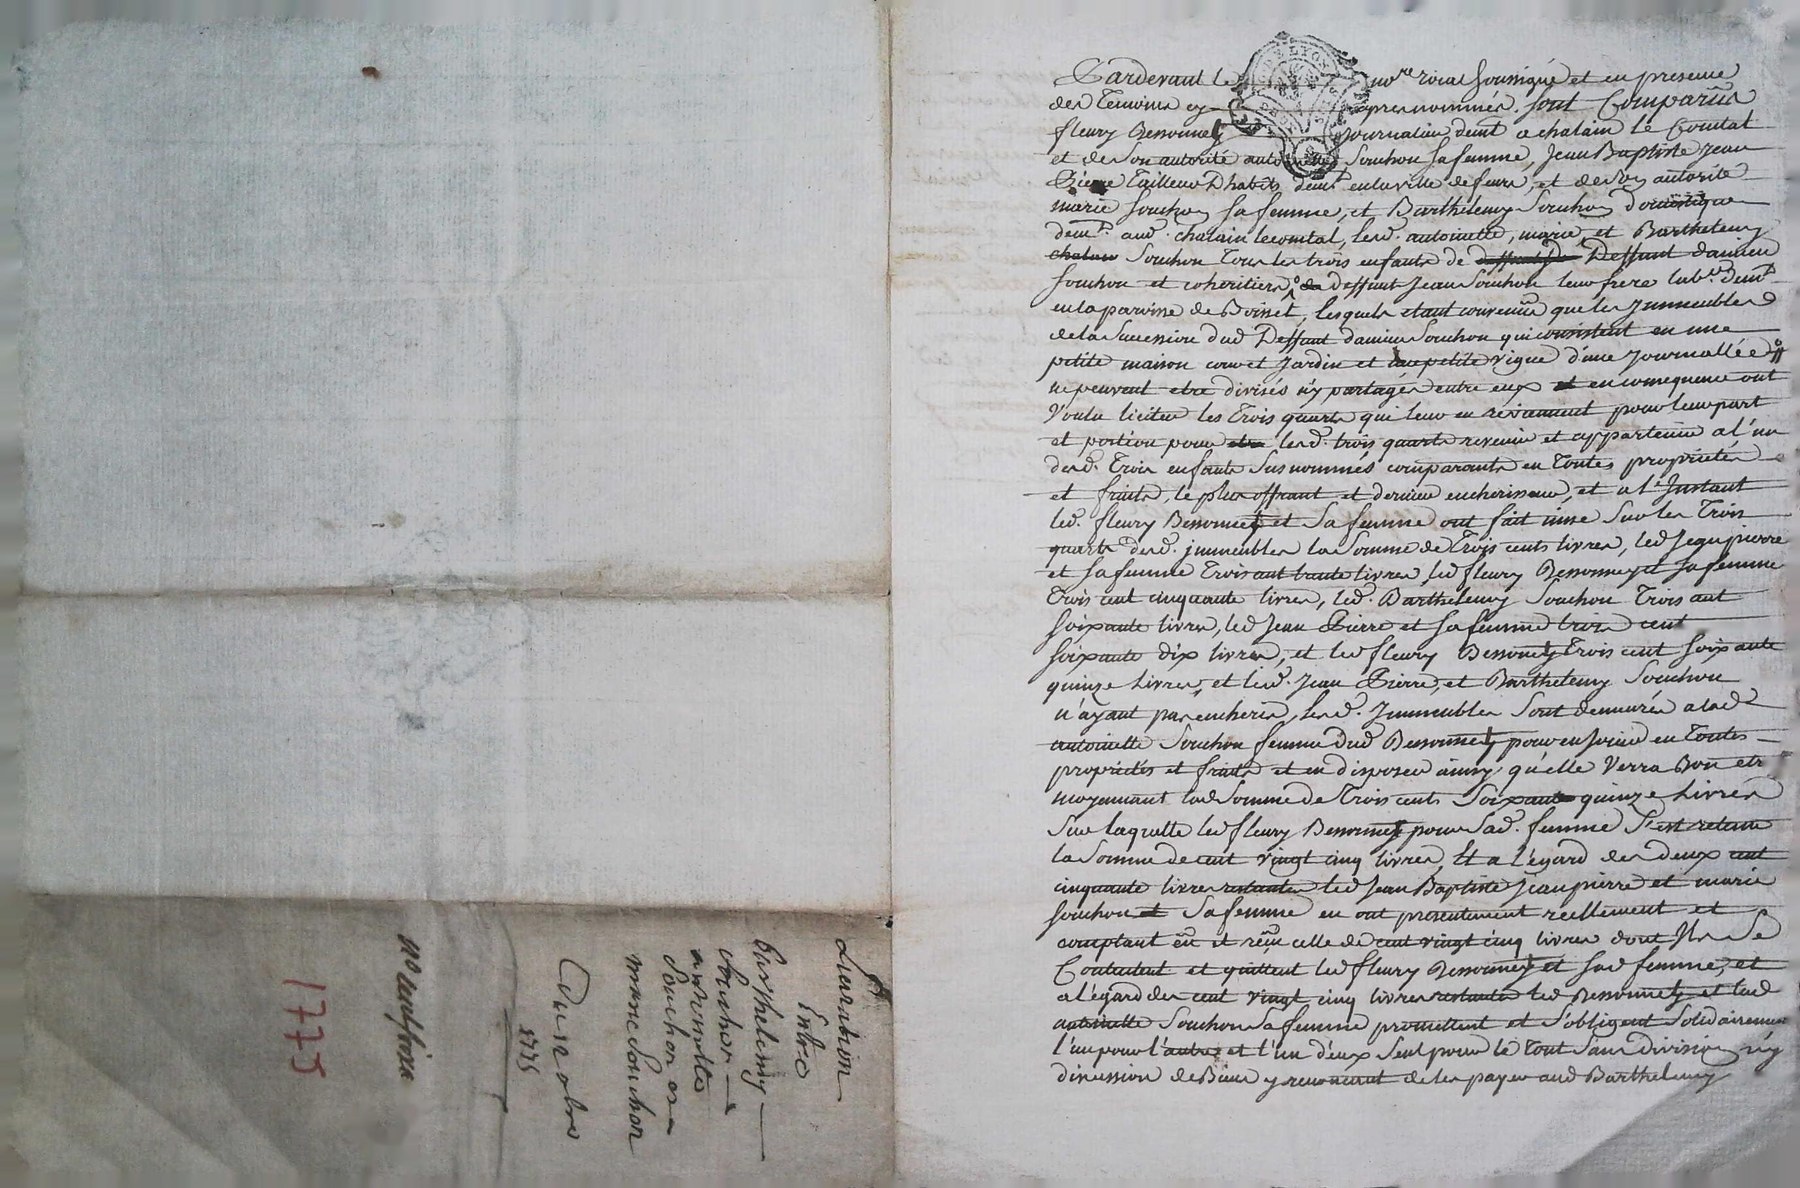 Pardevant le no.re roial soussigné et en presence
des temoins cy apres nommés, sont Comparûs
fleury Bessonnet journalier demt a chalain le Comtal
et de Son autorité antoinette Souchon sa femme, Jean Baptiste Jean
Pierre Tailleur D'habits demt. en la ville de feurs, et de Son autorité
marie Souchon sa femme, et Barthelemy Souchon domestique
demt. aud. chalain lecomtal, lesd. antoinette, marie, et Barthelemy
Souchon tous les trois enfants de Deffunt damien
Souchon et coheritiers de deffunt Jean Souchon leur frere lab.r demt
en la paroisse de Boisset, lesquels etant convenus que les Immeubles
de la Succession dud Deffunt damien Souchon qui consistent en une
petite maison cour et Jardin et une petite vigne d'une Journallée
ne peuvent etre divisés n'y partagés entre eux et en consequence ont
Voulu liciter les trois quarts qui leur en reviennent pour leur part
et portion pour lesd. trois quarts revenir et appartenir a l'un
desd. Trois enfants Susnommés comparants en toutes proprietés
et fruits, le plus offrant et dernier encherisseur, et a l'Instant
led. fleury Bessonnet et Sa femme ont fait mise Sur les Trois
quarts desd. immeubles la Somme de Trois cents livres, led Jean pierre
et Sa femme Trois cent trente livres, led fleury Bessonnet et Sa femme
Trois cent cinquante livres, led. Barthelemy Souchon Trois cent
Soixante livres, led Jean Pierre et Sa femme trois cent
Soixante dix livres, et led fleury Bessonnet Trois cent Soixante
quinze Livres, et lesd. Jean Pierre, et Barthelemy Souchon
n'ayant pas encheris, lesd. Immeubles Sont demeurés a lad
antoinette Souchon femme dud Bessonnet pour en Jouir en toutes
proprietés et fruits et en disposer ainsy qu'elle Verra Bon etre
moyennant lad Somme de Trois cents Soixante quinze Livres
Sur laquelle led fleury Bessonnet pour Sad. femme S'est retenu
la Somme de cent vingt cinq livres, Et a l'egard des deux cent
cinquante livres restantes led Jean Baptiste Jean pierre et marie
Souchon Sa femme en ont presentement reellement et
comptant eu et reçu celle de cent vingt cinq livres dont Ils Se
Contentent et quittent led fleury Bessonnet et Sad femme, et
a l'égard des cent vingt cinq livres restantes led Bessonnet et lad
antoinette Souchon Sa femme promettent et S'obligent Solidairement
l'un pour l'autre et l'un d'eux Seul pour le tout Sans division n'y
discussion de Biens y renoncant de les payer aud Barthelemy
Entre
Barthelemy
Souchon
antoinette
Souchon et
marie Souchon
Du 12 obre
1775
1775